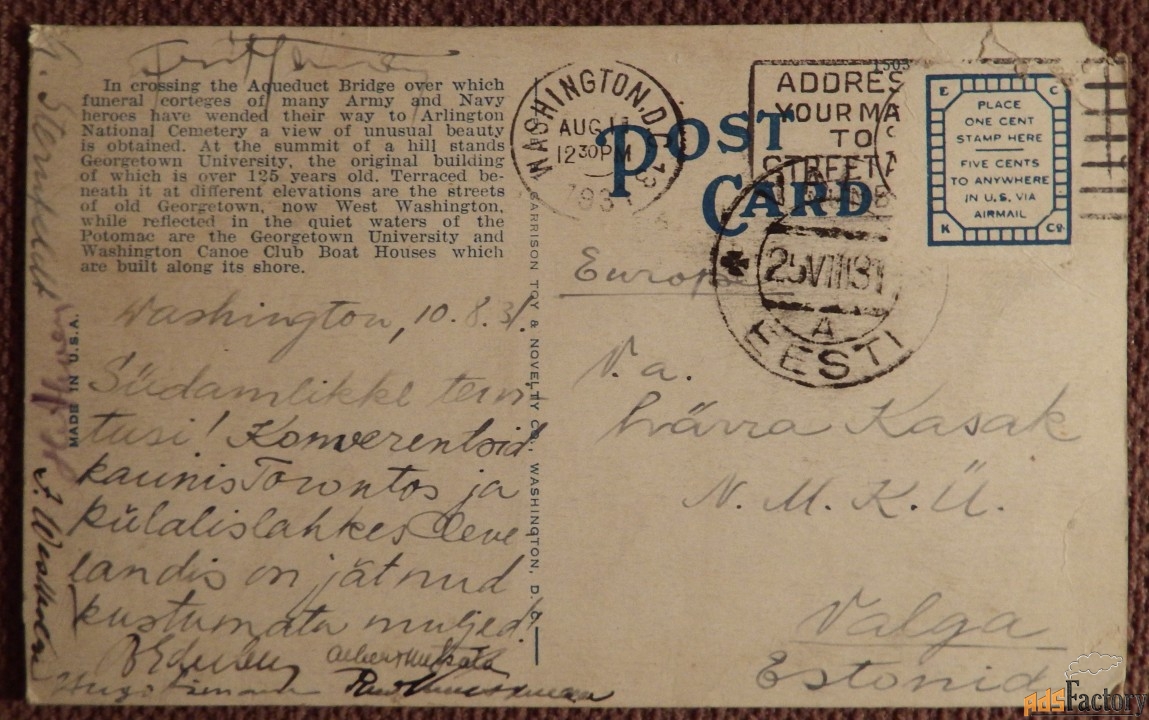 In crossing the Aqueduct Bridge over which
funeral corteges of many Army and Navy
heroes have wended their way to Arlington
National Cemetery a view of unusual beauty
is obtained. At the summit of a hill stands
Georgetown University, the original building
of which is over 125 years old. Terraced be-
neath it at different elevations are the streets
of old Georgetown, now West Washington,
while reflected in the quiet waters of the
Potomac are the Georgetown University and
Washington Canoe Club Boat Houses which
are built along its shore.
MADE IN U.S.A.
Washington, 10.8.31.
Südamlikke tervi
tusi! Konverentsid
kaunis Torontos ja
külalislahkes Cleve
landis on jätnud
kustumata muljed!
GARRISON TOY & NOVELTY CO., WASHINGTON, D. C.
WASHINGTON, D.C. 13
AUG
12 30 PM
193
POST
CARD
ADDRES
YOUR MA
TO
STREET
1503
E C
PLACE
ONE CENT
STAMP HERE
FIVE CENTS
TO ANYWHERE
IN U.S. VIA
AIRMAIL
K Co
25 VIII 31
A
EESTI
Europe
V. a.
Kasak
N. M. K. Ü.
Valga
Estonia
AdsFactory